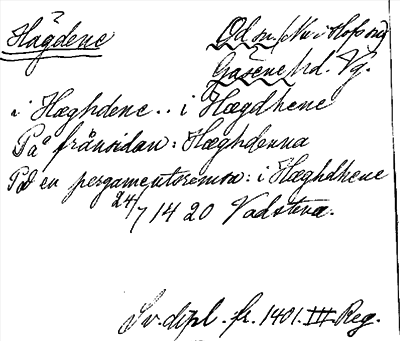 Hägdene
Od sn. (Nu i Hofs sn)
Gäsene hd. Vg.
i Hæghdene .. i Hægdhene
På frånsidan: Hæghdenna
På en pergamentsremsa: i Hæghdhene
24/7 1420 Vadstena.
Sv. dipl. fr. 1401. III. Reg.